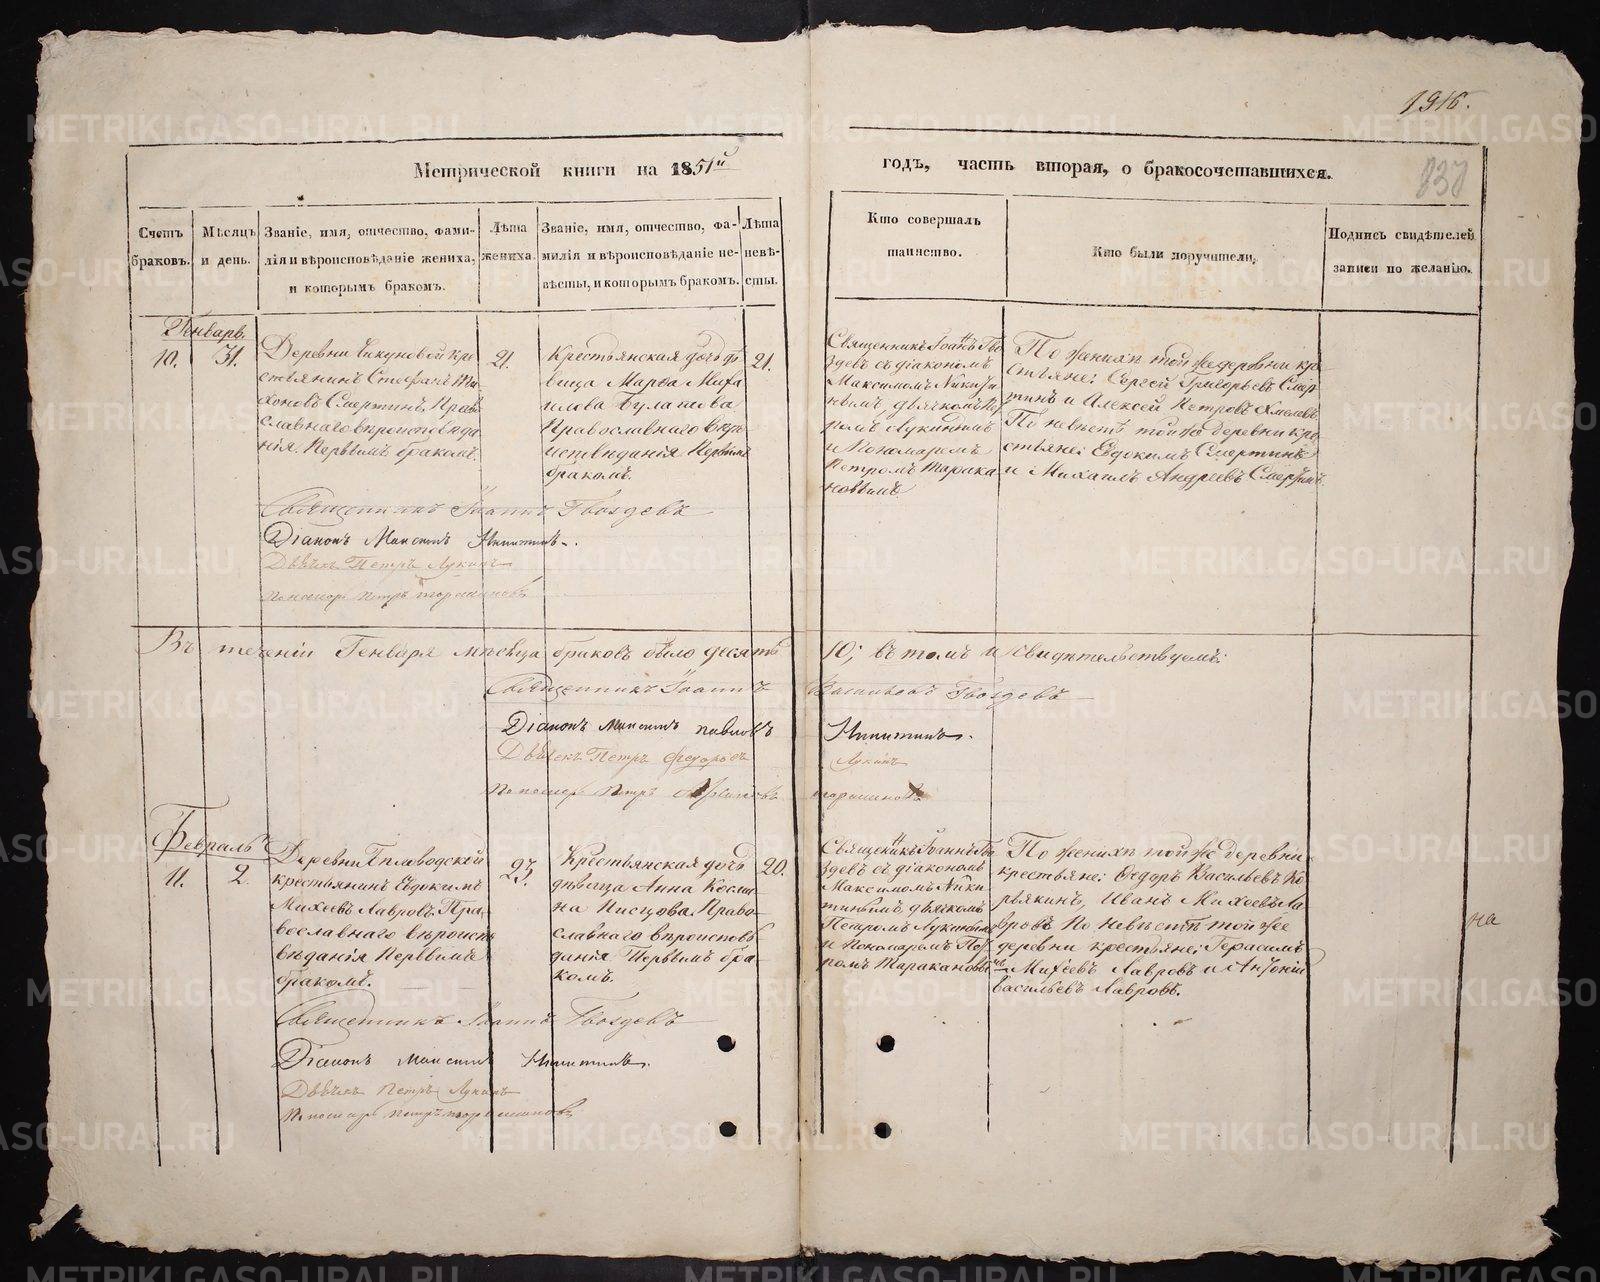 1916.
837
Метрической книги на 1851й
годъ, часть вторая, о бракосочетавшихся.
Счетъ браковъ.
Мѣсяцъ и день.
Званіе, имя, отчество, фами-
лія и вѣроисповѣданіе жениха,
и которымъ бракомъ.
Лѣта
жениха.
Званіе, имя, отчество, фа-
милія и вѣроисповѣданіе не-
вѣсты, и которымъ бракомъ.
Лѣта
невѣ-
сты.
Кто совершалъ
таинство.
Кто были поручители,
Подпись свидѣтелей
записи по желанію.
Генварь.
10.
31.
Деревни Чикуновой кре
стьянинъ Стефанъ Ти-
хоновъ Смертинъ, Право
славнаго вѣроисповѣда
нія. Первымъ бракомъ.
21.
Крестьянская дочь дѣ
вица Марѳа Миха
илова Булатова
Православнаго вѣро
исповѣданія Первымъ
бракомъ.
21.
Священникъ Іоаннъ Гво
здевъ съ діакономъ
Максимомъ Никити
нымъ, дьячкомъ Пет
ромъ Лукинымъ
и Пономаремъ
Петромъ Таракановымъ
По женихѣ той же деревни кре
стьяне: Сергей Григорьевъ Смер
тинъ и Алексей Петровъ Хмелевъ
По невѣстѣ той же деревни кре
стьяне: Евдокимъ Смертинъ
и Михаилъ Андреевъ Смертинъ.
Священникъ Іоаннъ Гвоздевъ
Діаконъ Максимъ Никитинъ.
Дьячекъ Петръ Лукинъ
Пономарь Петръ Таракановъ
Въ теченіи Генваря мѣсяца браковъ было десять 10; въ томъ и свидѣтельствуемъ:
Священникъ Іоаннъ Васильевъ Гвоздевъ
Діаконъ Максимъ Павловъ Никитинъ.
Дьячекъ Петръ Федоровъ Лукинъ
Пономарь Петръ Таракановъ
Февраль
11.
2.
Деревни Гиловодской
крестьянинъ Евдокимъ
Михеевъ Лавровъ. Пра-
вославнаго вѣроиспо
вѣданія Первымъ
бракомъ.
23.
Крестьянская дочь
дѣвица Анна Косми
на Писцова. Право-
славнаго вѣроисповѣ
данія Первымъ бра-
комъ.
20.
Священникъ Іоаннъ Гво
здевъ съ діакономъ
Максимомъ Ники
тинымъ, дьячкомъ
Петромъ Лукинымъ
и Пономаремъ Пет
ромъ Таракановымъ
По женихѣ той же деревни
крестьяне: Ѳедоръ Васильевъ Ко
рякинъ, Иванъ Михеевъ Ла
вровъ По невѣстѣ той же
деревни крестьяне: Герасимъ
Михеевъ Лавровъ и Антоній
Васильевъ Лавровъ.
на
Священникъ Іоаннъ Гвоздевъ
Діаконъ Максимъ Никитинъ.
Дьячекъ Петръ Лукинъ
Пономарь Петръ Таракановъ
METRIKI.GASO-URAL.RU